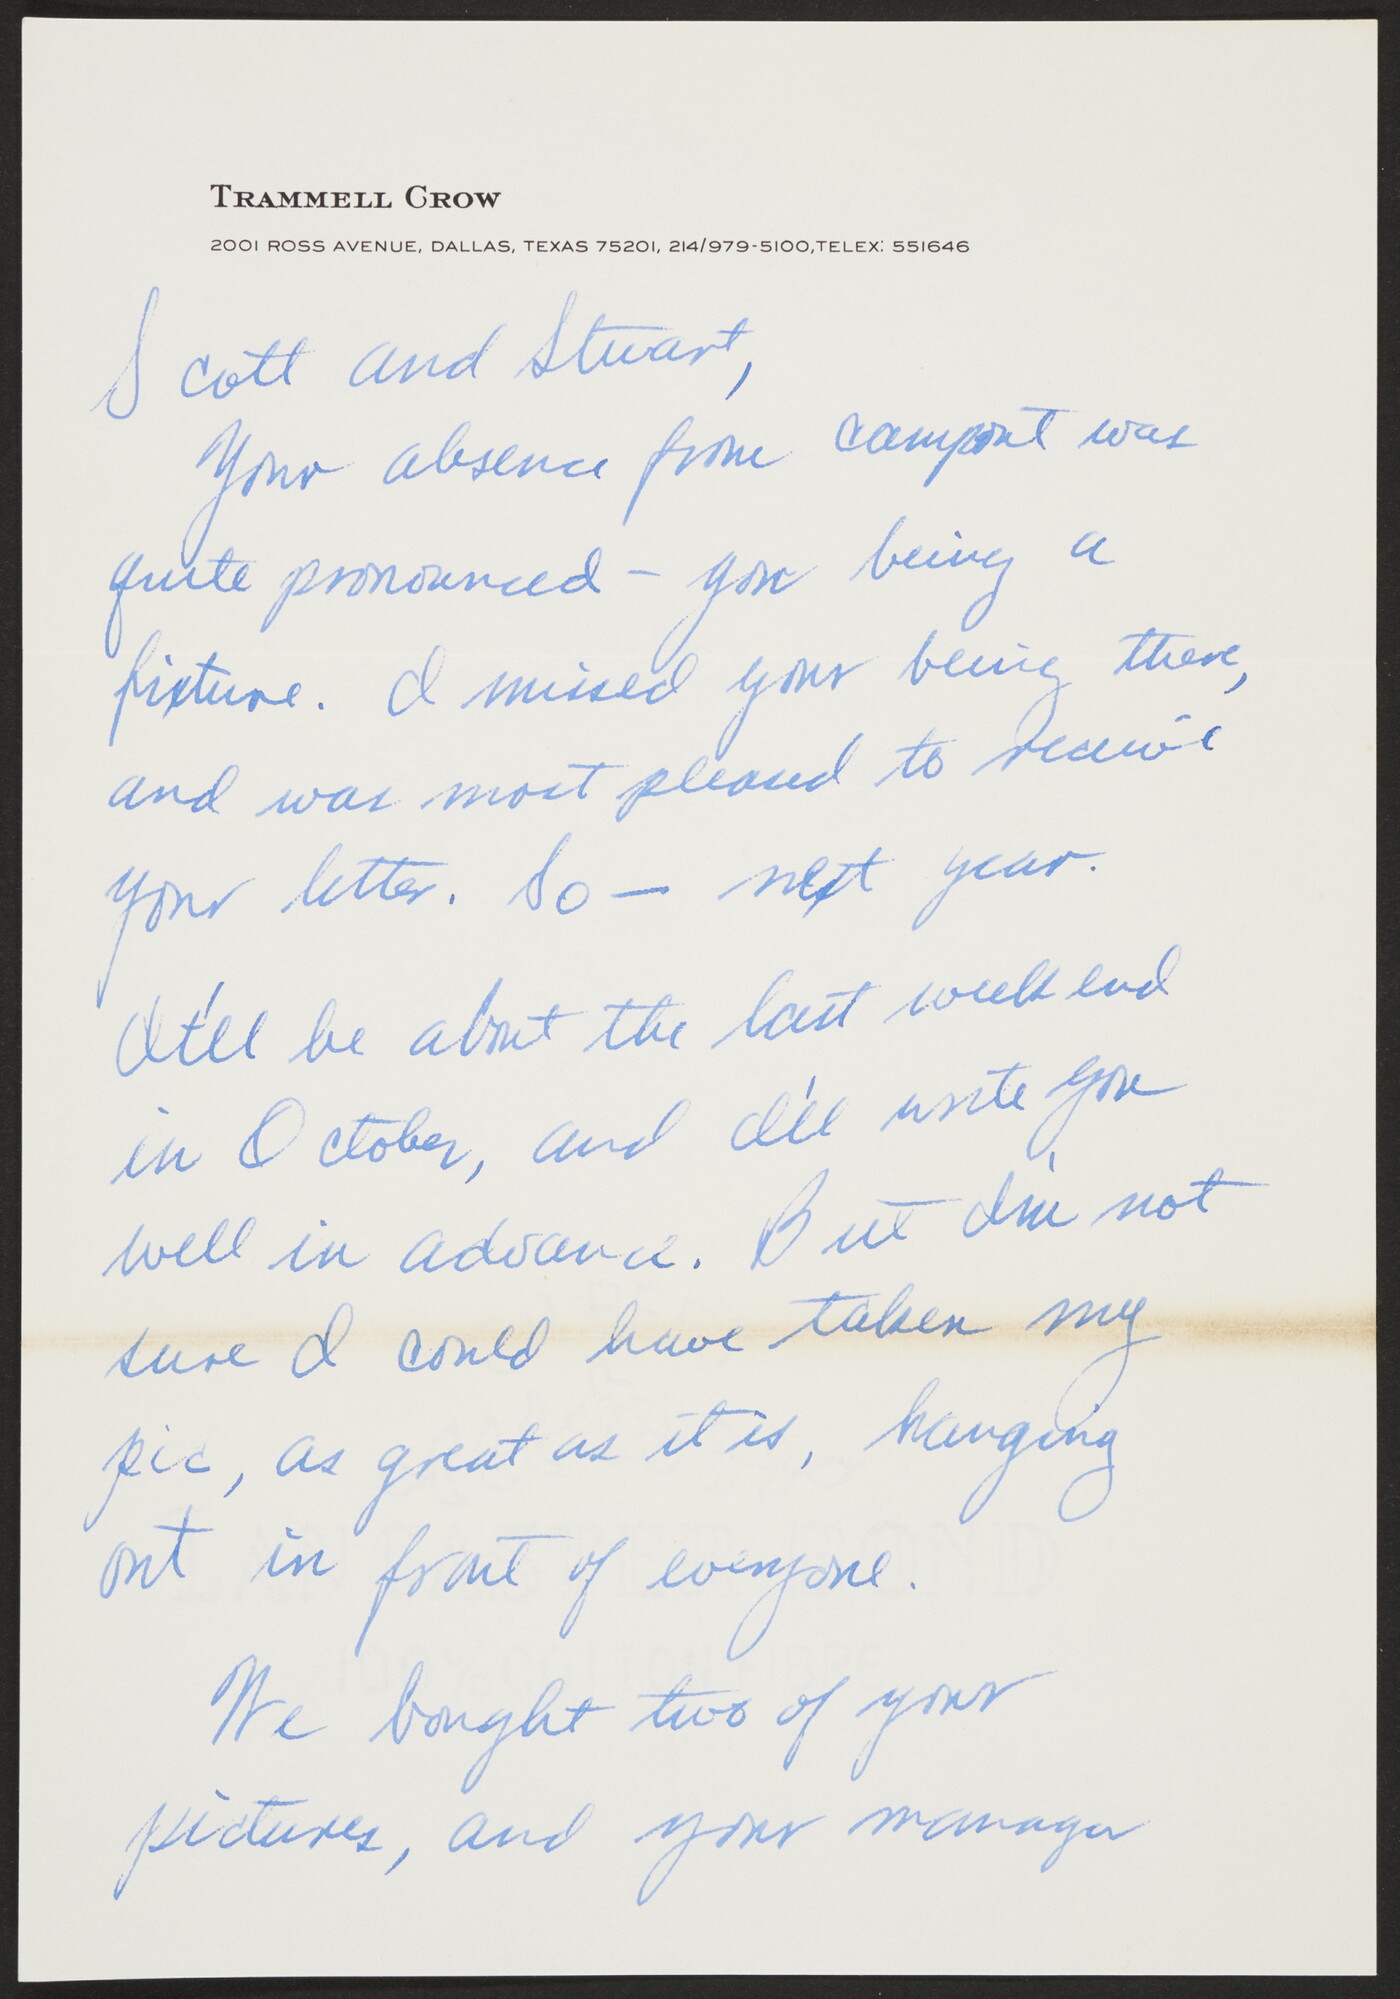 TRAMMELL CROW
2001 ROSS AVENUE, DALLAS, TEXAS 75201, 214/979-5100, TELEX: 551646
Scott and Stuart,
Your absence from campout was
quite pronounced - you being a
fixture. I missed your being there,
and was most pleased to receive
your letter. So — next year.
It'll be about the last weekend
in October, and I'll write you
well in advance. But I'm not
sure I could have taken my
pic, as great as it is, hanging
out in front of everyone.
We bought two of your
pictures, and your manager